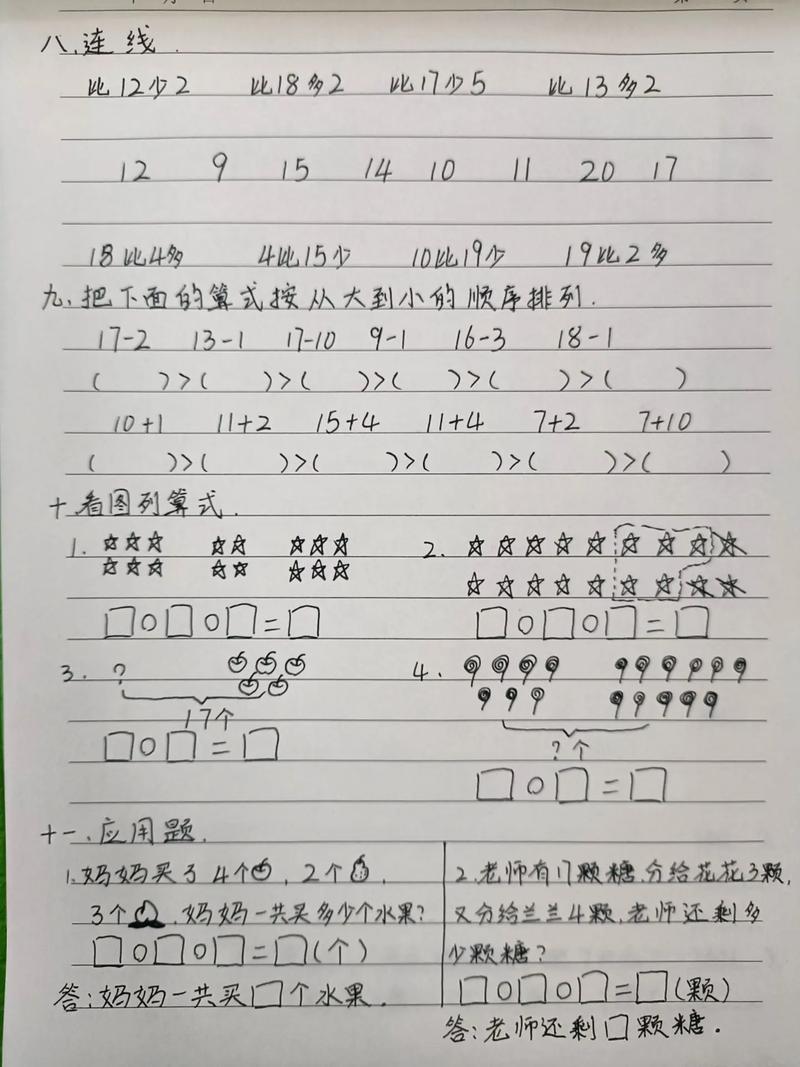 八、连线.
比12少2 比18多2 比17少5 比13多2
12 9 15 14 10 11 20 17
18比4多 4比15少 10比19少 19比2多
九、把下面的算式按从大到小的顺序排列.
17-2 13-1 17-10 9-1 16-3 18-1
( )>( )>( )>( )>( )>( )
10+1 11+2 15+4 11+4 7+2 7+10
( )>( )>( )>( )>( )>( )
十.看图列算式.
1. 2.
□○□○□=□ □○□○□=□
3. ? 4.
17个
□○□=□
?个
□○□=□
十一、应用题.
1.妈妈买了4个 , 2个 ,
3个 .妈妈一共买多少个水果?
□○□○□=□(个)
答:妈妈一共买□个水果.
2.老师有17颗糖,分给花花3颗,
又分给兰兰4颗,老师还剩多
少颗糖?
□○□○□=□(颗)
答:老师还剩□颗糖.